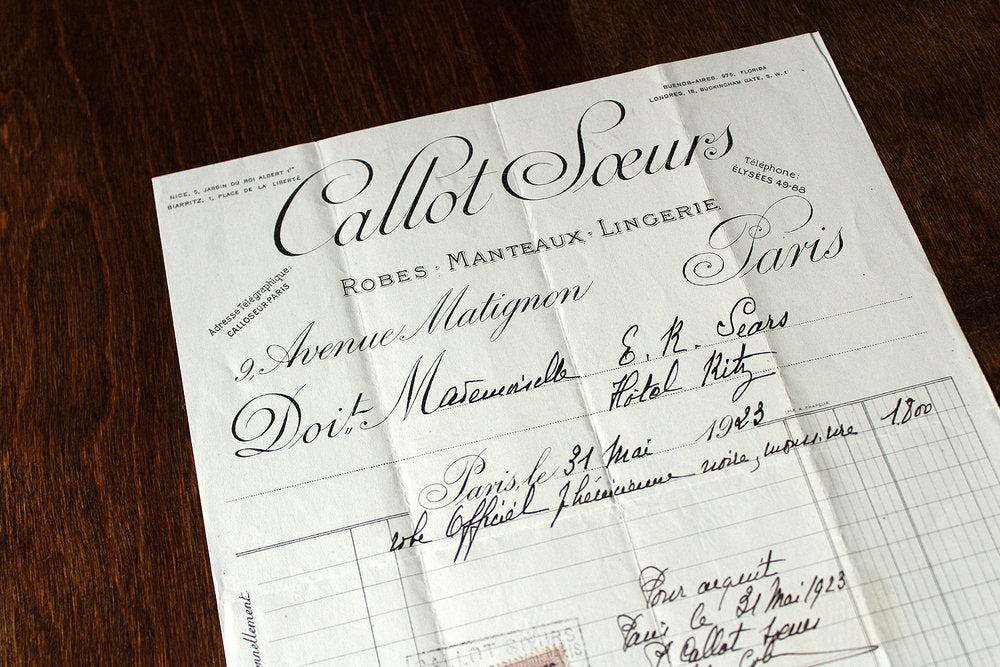 BUENOS-AIRES. 975, FLORIDA
LONDRES, 18, BUCKINGHAM GATE, S.W.1
NICE, 5, JARDIN DU ROI ALBERT 1er
BIARRITZ, 1, PLACE DE LA LIBERTÉ
Callot Sœurs
Téléphone:
ÉLYSÉES 49-88
ROBES · MANTEAUX · LINGERIE
Adresse Télégraphique:
CALLOSEUR-PARIS
9, Avenue Matignon Paris
Doit Mademoiselle E. R. Sears
Hôtel Ritz
Paris, le 31 Mai 1923
robe Officiel phénicienne noire, 1.800
Pour acquit
Paris le 31 Mai 1923
Callot Sœurs
CALLOT SŒURS
nnellement